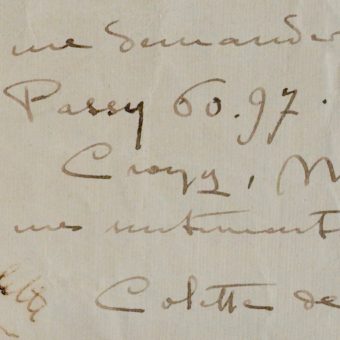 me demander
Passy 60.97.
Croyez, M
mes sentiments
Colette de